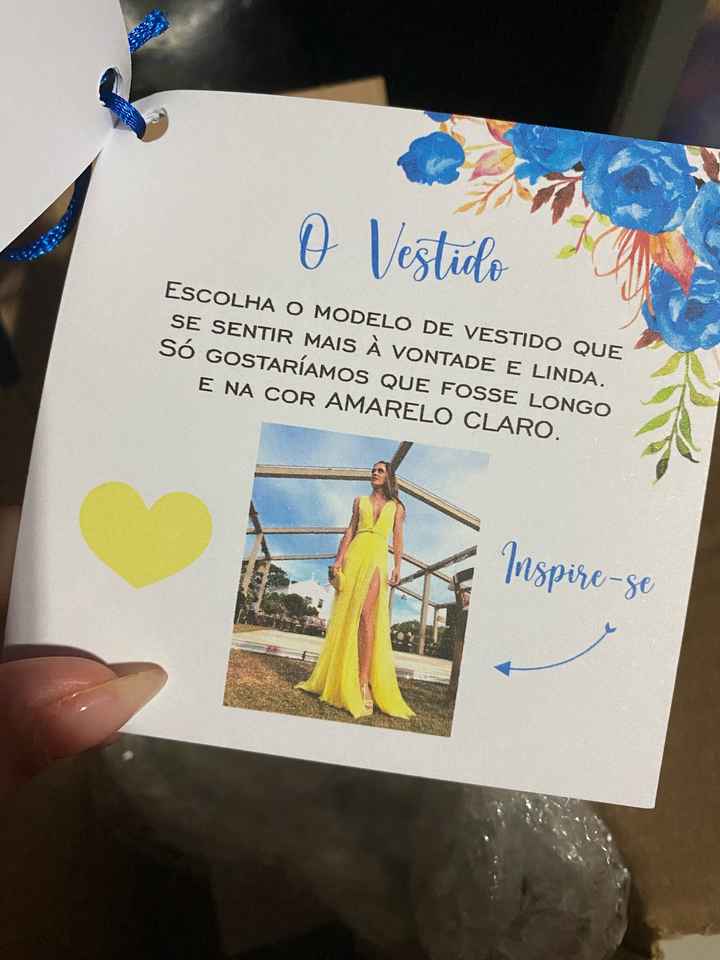 O Vestido
Escolha o modelo de vestido que
se sentir mais à vontade e linda.
Só gostaríamos que fosse longo
e na cor AMARELO CLARO.
Inspire-se